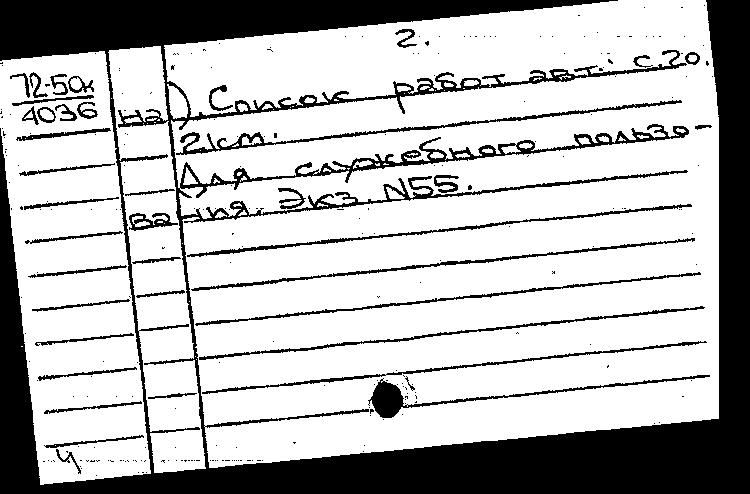 2.
72-50к
4036
на). Список работ авт.: с.20.
21см.
Для служебного пользо-
вания. Экз. N55.
ч